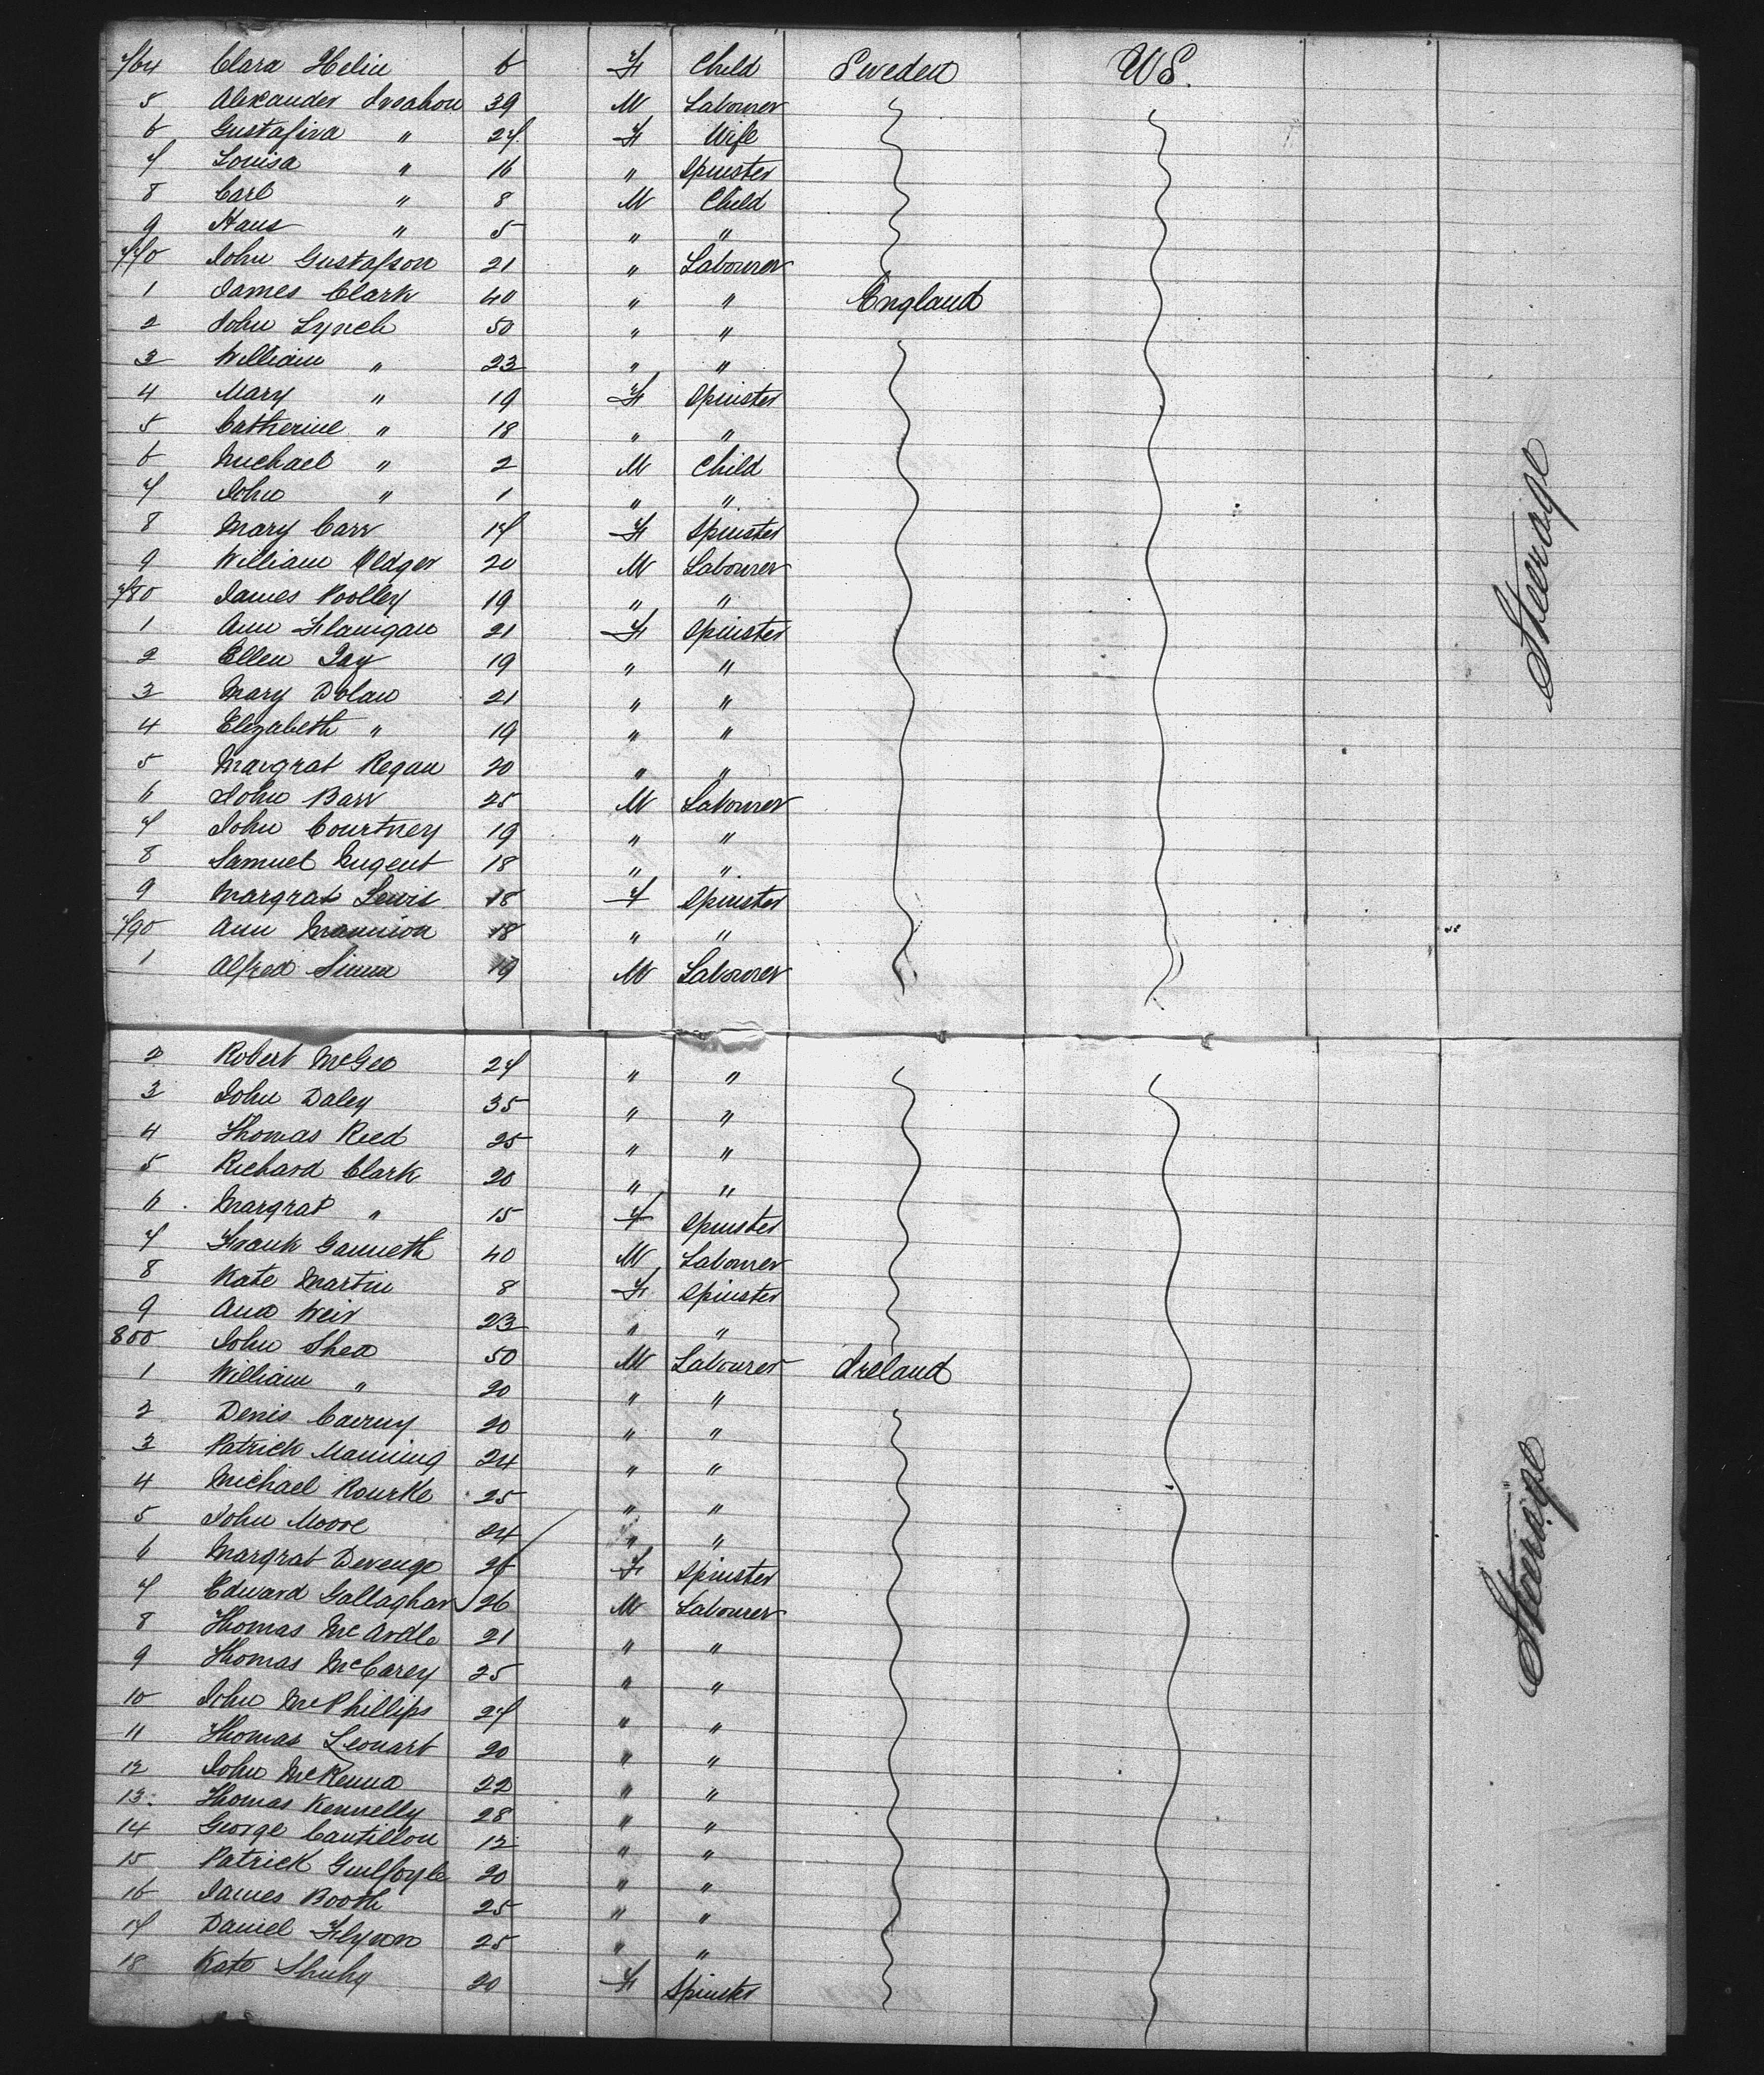 764 Clara Helin 6 F Child Sweden U.S.
5 Alexander 39 M Labourer
6 Gustafiva " 27 F Wife
7 Louisa " 16 " Spinster
8 Carl " 8 M Child
9 Hans " 5 " "
770 John Gustafson 21 " Labourer
1 James Clark 40 " " England
2 John Lynch 50 " "
3 William " 23 " "
4 Mary " 19 F Spinster
5 Catherine " 18 " "
6 Michael " 2 M Child
7 John " 1 " "
8 Mary Carr 17 F Spinster
9 William Oldger 20 M Labourer
780 James Pooley 19 " "
1 Ann Flanigan 21 F Spinster
2 Ellen 19 " "
3 Mary Dolan 21 " "
4 Elizabeth " 19 " "
5 Margrat Regan 20 " "
6 John Barr 25 M Labourer
7 John Courtney 19 " "
8 Samuel Nugent 18 " "
9 Margrat Lewis 18 F Spinster
790 Ann Mannion 18 " "
1 Alfred 19 M Labourer
Steerage
2 Robert McGee 27 " "
3 John Daley 35 " "
4 Thomas Reed 25 " "
5 Richard Clark 20 " "
6 Margrat " 15 F Spinster
7 Frank Ganneth 40 M Labourer
8 Kate Martin 8 F Spinster
9 Ann Weir 23 " "
800 John Shea 50 M Labourer Ireland
1 William " 20 " "
2 Denis 20 " "
3 Patrick Manning 24 " "
4 Michael Rourke 25 " "
5 John Moore 24 " "
6 Margrat Devenge 26 F Spinster
7 Edward Gallaghar 26 M Labourer
8 Thomas McArdle 21 " "
9 Thomas McCarey 25 " "
10 John McPhillips 27 " "
11 Thomas Leonart 20 " "
12 John McKenna 22 " "
13 Thomas Kennelly 28 " "
14 George Cantillon 12 " "
15 Patrick Guilfoyle 20 " "
16 James Booth 25 " "
17 Daniel Flynn 25 " "
18 Kate 20 F Spinster
Steerage